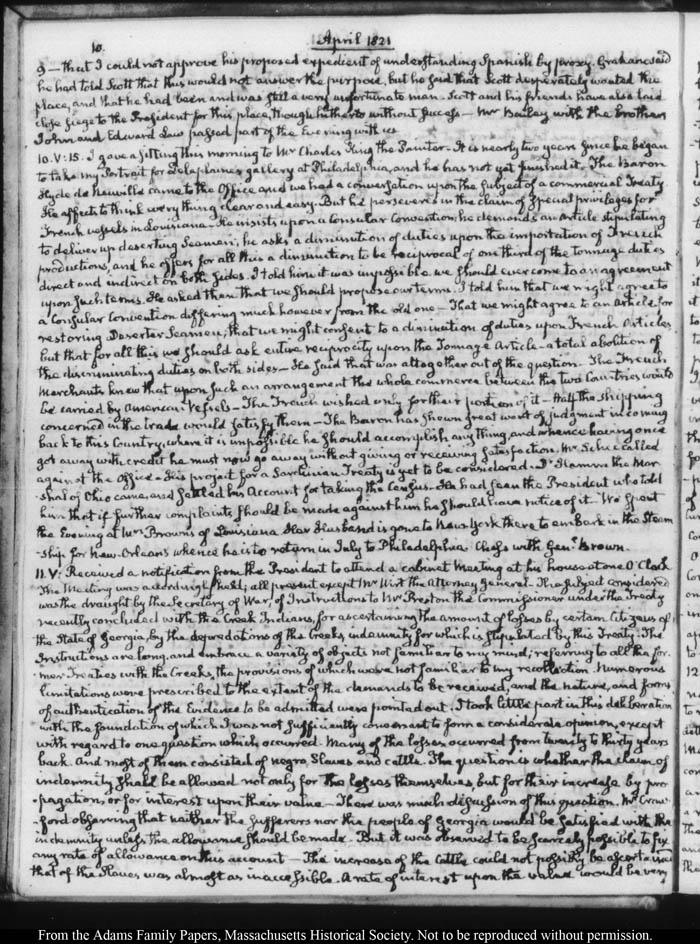 10.
April 1821
9 — that I could not approve his proposed expedient of understanding Spanish by proxy. Graham said
he had told Scott that this would not answer the purpose, but he said that Scott desperately wanted the
place, and that he had been and was still a very unfortunate man. Scott and his friends have also laid
close siege to the President for this place, though hitherto without success — Mr Bailey with the brothers
John and Edward Law passed part of the Evening with us
10. V:15. I gave a sitting this morning to Mr Charles King the Painter. It is nearly two years since he began
to take my Portrait for Delaplaine's gallery at Philadelphia, and he has not yet finished it. The Baron
Hyde de Neuville came to the Office and we had a conversation upon the subject of a commercial Treaty
He affects to think every thing clear and easy. But he perseveres in the claim of special privileges for
French vessels in Louisiana. He insists upon a Consular Convention; he demands an Article stipulating
to deliver up deserting Seamen; he asks a diminution of duties upon the importation of French
productions, and he offers for all this a diminution to be reciprocal of one third of the tonnage duties
direct and indirect on both sides. I told him it was impossible we should ever come to an agreement
upon such terms. He asked then that we should propose our terms. I told him that we might agree to
a Consular Convention differing much however from the old one — That we might agree to an Article for
restoring Deserter Seamen; that we might consent to a diminution of duties upon French Articles
but that for all this we should ask entire reciprocity upon the Tonnage Article — a total abolition of
the discriminating duties on both sides — He said that was altogether out of the question. The French
Merchants knew that upon such an arrangement the whole commerce between the two Countries would
be carried by American Vessels — The French wished only for their portion of it — Half the shipping
concerned in the trade would satisfy them — The Baron has shown great want of judgment in coming
back to this Country, where it is impossible he should accomplish any thing, and whence having once
got away with credit he must now go away without giving or receiving satisfaction. Mr called
again at the Office — His project for a Sardinian Treaty is yet to be considered — Dr Hamm the Mar
-shal of Ohio came and settled his Account for taking the Census. He had seen the President who told
him that if further complaints should be made against him he should have notice of it. We spent
the Evening at Mrs Brown's of Louisiana. Her Husband is gone to New York there to embark in the Steam
-ship for New-Orleans whence he is to return in July to Philadelphia. Chess with Genl. Brown.
11. V: Received a notification from the President to attend a cabinet Meeting at his house at one O'Clock
The Meeting was accordingly held; all present except Mr Wirt the Attorney General. The subject considered
was the draught by the Secretary of War, of Instructions to Mr Preston the Commissioner under the Treaty
recently concluded with the Creek Indians, for ascertaining the amount of losses by certain Citizens of
the State of Georgia, by the depredations of the Creeks, indemnity for which is stipulated by this Treaty. The
Instructions are long, and embrace a variety of objects not familiar to my mind; referring to all the for
-mer Treaties with the Creeks, the provisions of which were not familiar to my recollection. Numerous
limitations were prescribed to the extent of the demands to be received, and the nature, and forms
of authentication of the Evidence to be admitted were pointed out. I took little part in this deliberation
with the foundation of which I was not sufficiently conversant to form a considerate opinion, except
with regard to one question which occurred. Many of the losses occurred from twenty to thirty years
back. And most of them consisted of negro Slaves and cattle. The question is whether the claim of
indemnity shall be allowed not only for the losses themselves, but for their increase by pro
-pagation, or for interest upon their value — There was much discussion of this question. Mr Craw-
-ford observing that neither the sufferers nor the people of Georgia would be satisfied with the
indemnity unless the allowance should be made. But it was observed to be scarcely possible to fix
any rate of allowance on this account — The increase of the Cattle could not possibly be ascertained
that of the Slaves was almost as inaccessible. A rate of interest upon the value would be very
From the Adams Family Papers, Massachusetts Historical Society. Not to be reproduced without permission.